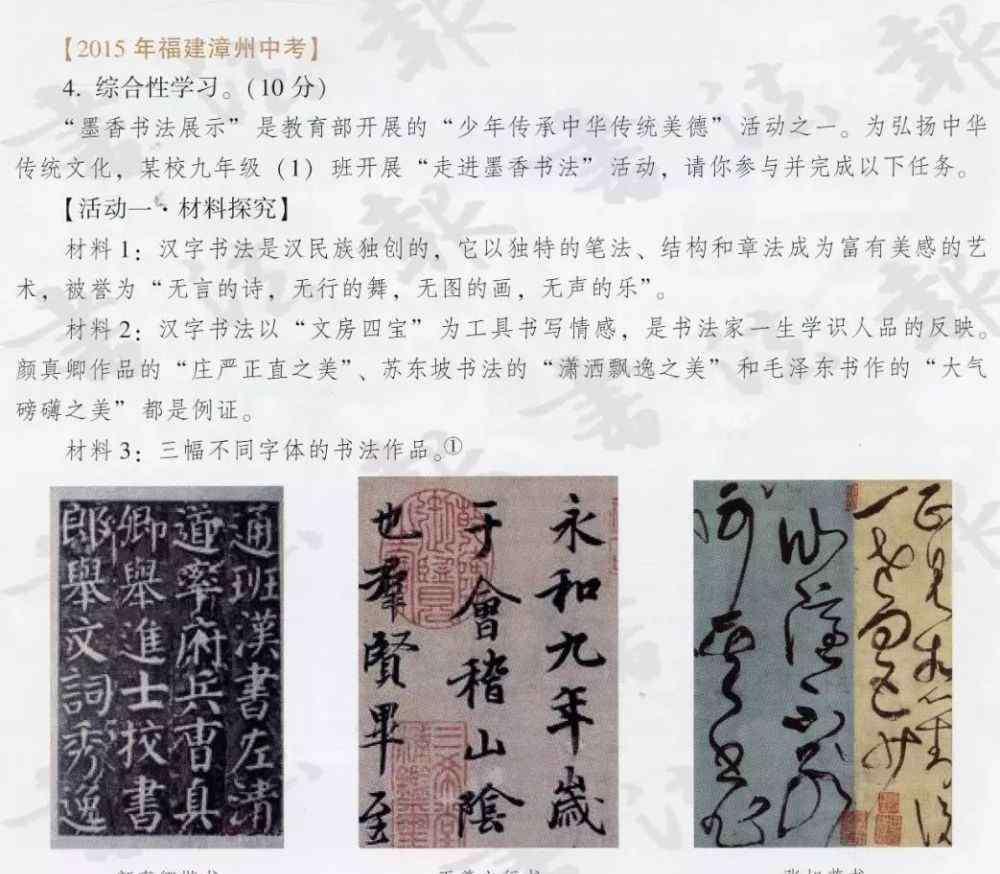 【2015 年福建漳州中考】
4. 综合性学习。(10 分)
“墨香书法展示” 是教育部开展的 “少年传承中华传统美德” 活动之一。为弘扬中华
传统文化，某校九年级 (1) 班开展 “走进墨香书法” 活动，请你参与并完成以下任务。
【活动一·材料探究】
材料 1：汉字书法是汉民族独创的，它以独特的笔法、结构和章法成为富有美感的艺
术，被誉为 “无言的诗，无行的舞，无图的画，无声的乐”。
材料 2：汉字书法以 “文房四宝” 为工具书写情感，是书法家一生学识人品的反映。
颜真卿作品的 “庄严正直之美”、苏东坡书法的 “潇洒飘逸之美” 和毛泽东书作的 “大气
磅礴之美” 都是例证。
材料 3：三幅不同字体的书法作品。①
通班漢書左清
道寧府兵曹真
卿舉進士校書
郎舉文詞秀逸
永和九年歲
于會稽山陰
也羣賢畢至